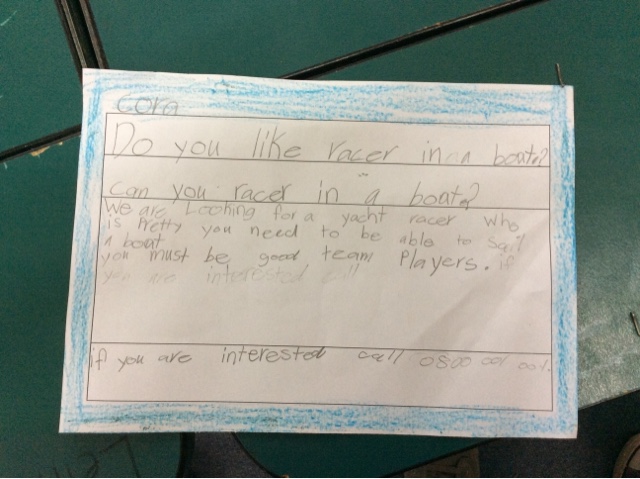 Cora
Do you like racer in a boat?
can you racer in a boat?
We are Looking for a yacht racer who
is Pretty you need to be able to Sail
a boat
you must be good team Players. if
you are interested call
if you are interested call 0800 001 001